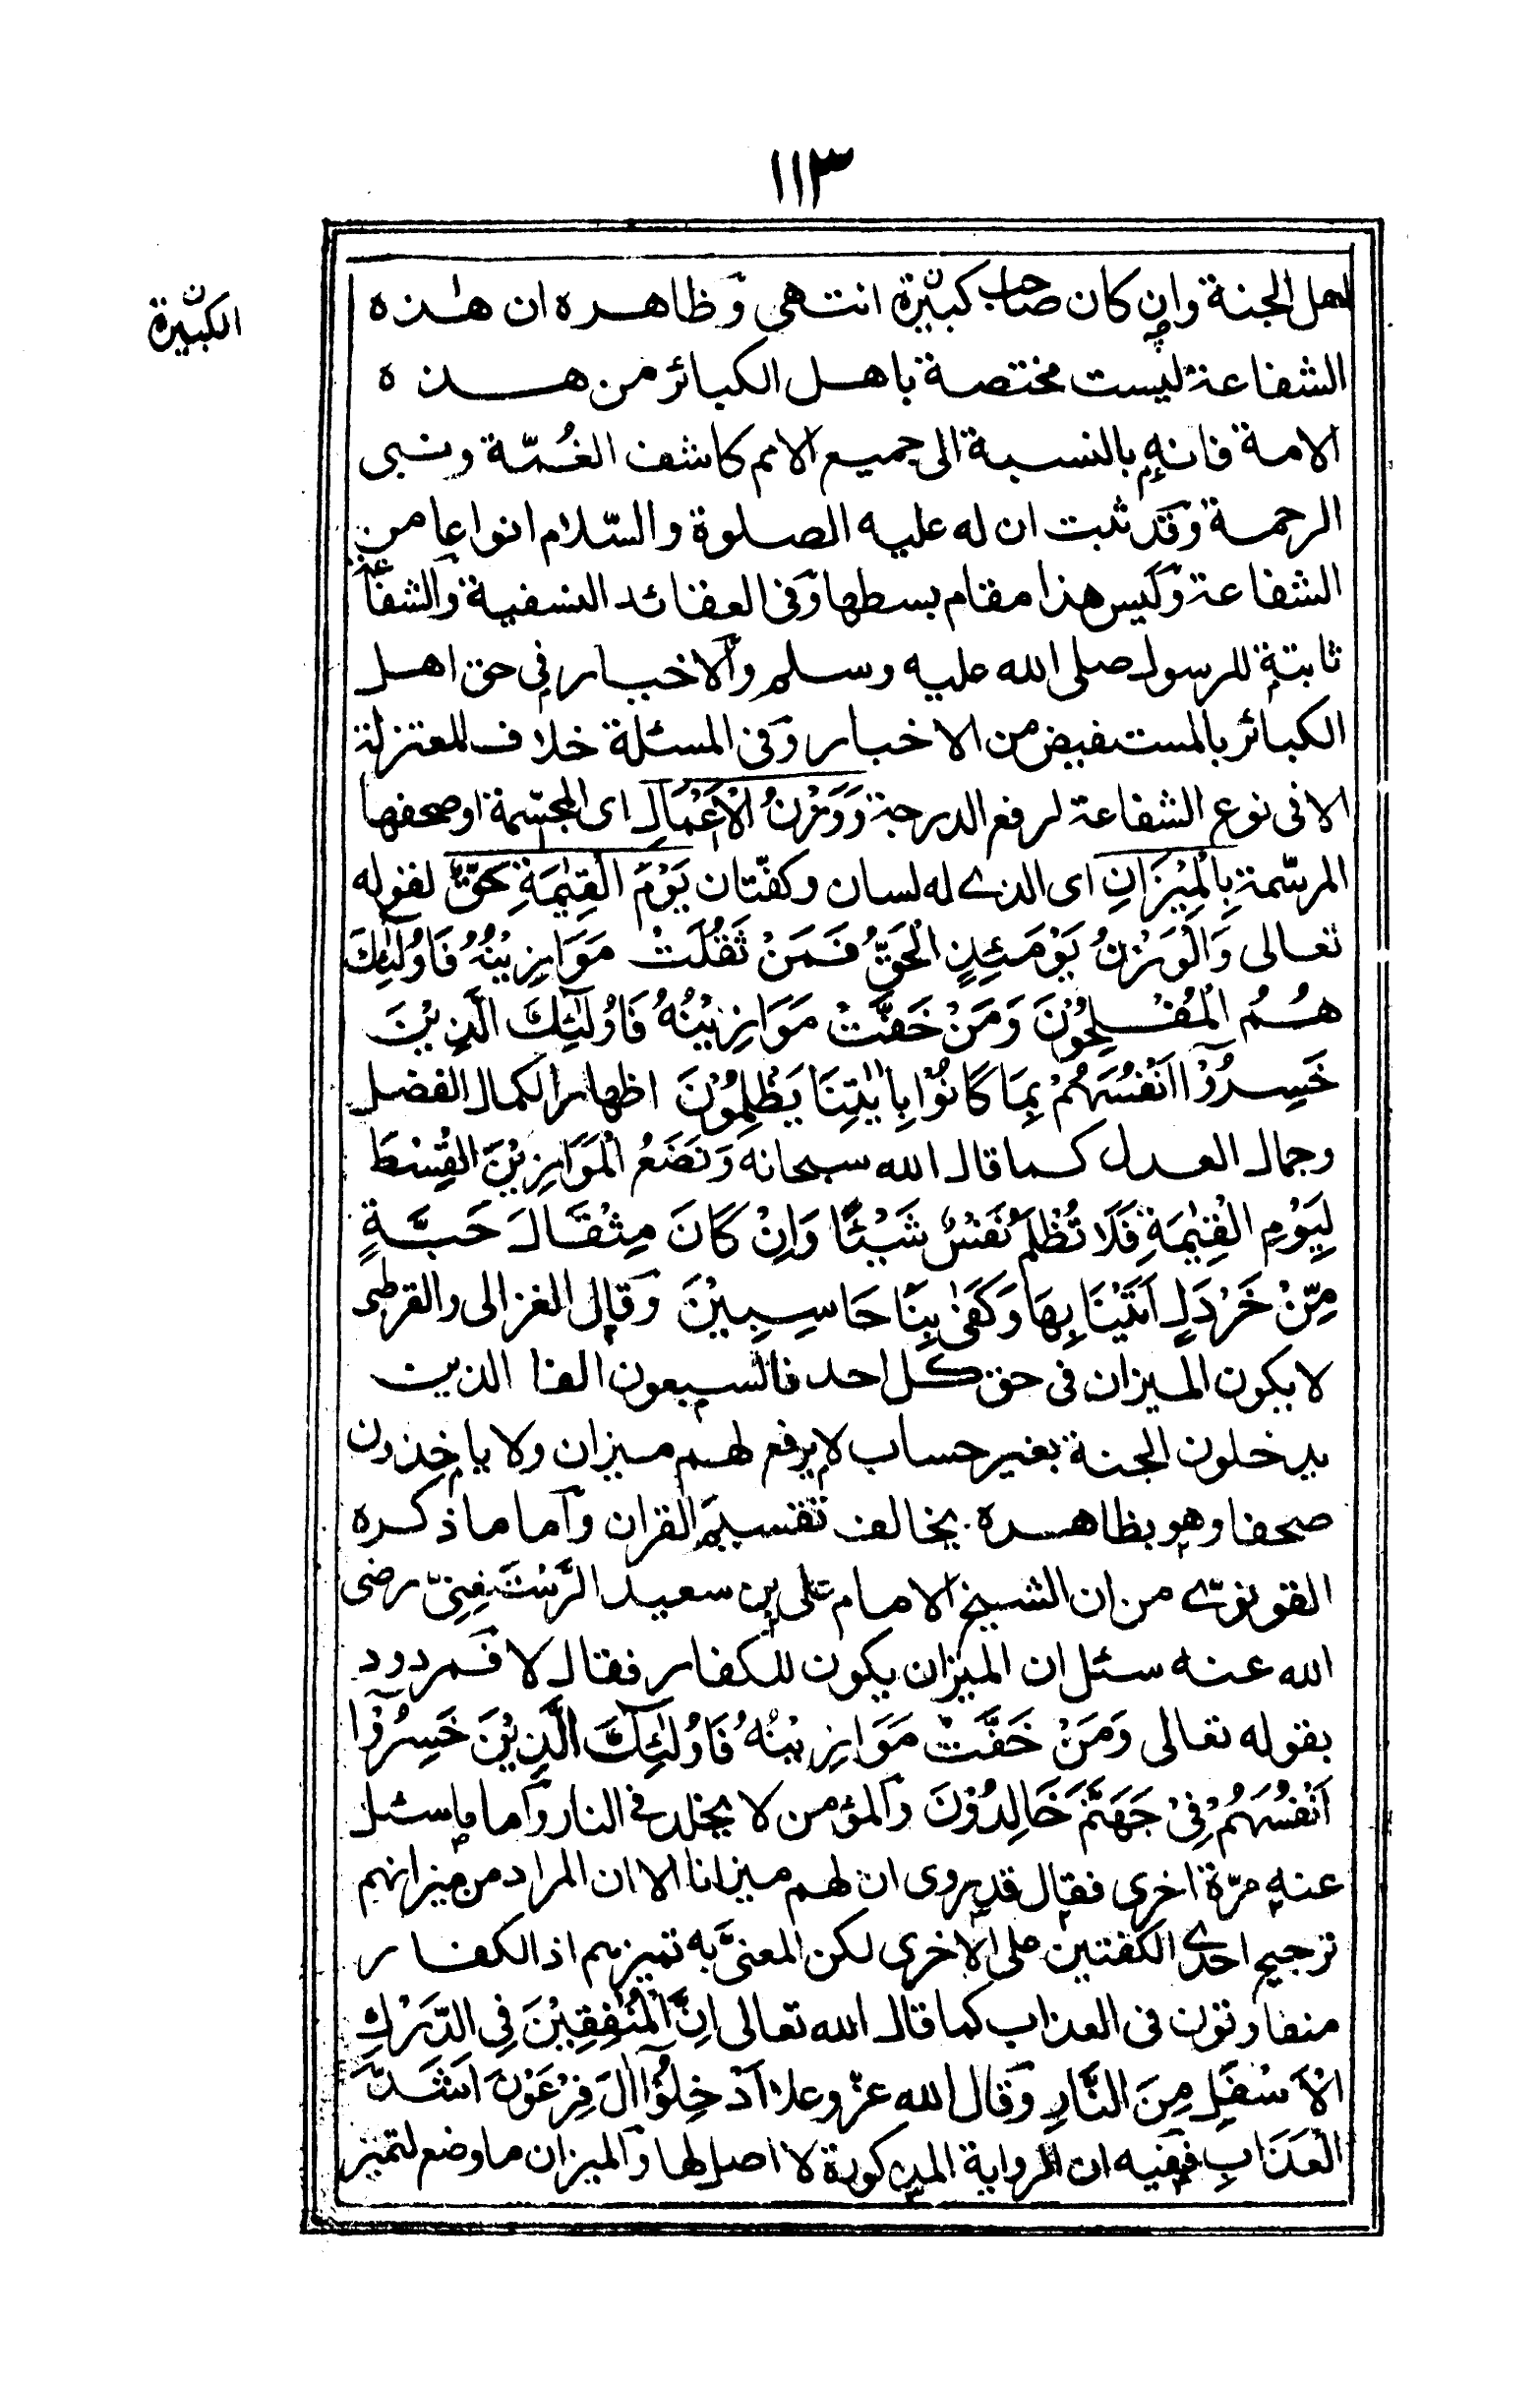 ١١٣
اهل الجنة وان كان صاحب كبيرة انتهى وظاهره ان هٰذه
الكبيرة
الشفاعة ليست مختصة باهل الكبائر من هذه
الامة فانه بالنسبة الى جميع الامم كاشف الغُمّة ونبى
الرحمة وقد ثبت ان له عليه الصلوة والسّلام انواعا من
الشفاعة وليس هذا مقام بسطها وفى العقائد النسفية والشفاعة
ثابتة للرسول صلى الله عليه وسلم والاخيار فى حق اهل
الكبائر بالمستفيض من الاخبار وفى المسئلة خلاف للمعتزلة
الا فى نوع الشفاعة لرفع الدرجة وَوَزْنُ الْاَعْمَالِ اى المجسّمة او صحفها
المرسّمة بِالْمِيْزَانِ اى الذى له لسان وكفّتان يَوْمَ الْقِيٰمَةِ حَقٌّ لقوله
تعالى وَالْوَزْنُ يَوْمَئِذِنِ الْحَقُّ فَمَنْ ثَقُلَتْ مَوَازِيْنُهٗ فَاُولٰٓئِكَ
هُمُ الْمُفْلِحُوْنَ وَمَنْ خَفَّتْ مَوَازِيْنُهٗ فَاُولٰٓئِكَ الَّذِيْنَ
خَسِرُوْٓا اَنْفُسَهُمْ بِمَا كَانُوْا بِاٰيٰتِنَا يَظْلِمُوْنَ اظهارا لكمال الفضل
وجمال العدل كما قال الله سبحانه وَنَضَعُ الْمَوَازِيْنَ الْقِسْطَ
لِيَوْمِ الْقِيٰمَةِ فَلَا تُظْلَمُ نَفْسٌ شَيْئًا وَاِنْ كَانَ مِثْقَالَ حَبَّةٍ
مِّنْ خَرْدَلٍ اَتَيْنَا بِهَا وَكَفٰى بِنَا حَاسِبِيْنَ وقال الغزالى والقرطبى
لا يكون الميزان فى حق كل احد فالسبعون الفا الذين
يدخلون الجنة بغير حساب لا يرفع لهم ميزان ولا ياخذون
صحفا وهو بظاهره يخالف تقسيم القران واما ما ذكره
القونوى من ان الشيخ الامام على بن سعيد الرُّسْتَغْفَنِىّ رضى
الله عنه سئل ان الميزان يكون للكفار فقال لا فمردود
بقوله تعالى وَمَنْ خَفَّتْ مَوَازِيْنُهٗ فَاُولٰٓئِكَ الَّذِيْنَ خَسِرُوْٓا
اَنْفُسَهُمْ فِىْ جَهَنَّمَ خَالِدُوْنَ والمؤمن لا يخلد فى النار واما ما سئل
عنه مرّة اخرى فقال قد روى ان لهم ميزانا الا ان المراد من ميزانهم
ترجيح احدى الكفتين على الاخرى لكن المعنىَّ به تميزهم اذ الكفار
متفاوتون فى العذاب كما قال الله تعالى اِنَّ الْمُنٰفِقِيْنَ فِى الدَّرْكِ
الْاَسْفَلِ مِنَ النَّارِ وقال الله عزّ وعلا اَدْخِلُوْٓا اٰلَ فِرْعَوْنَ اَشَدَّ
الْعَذَابِ ففيه ان الرواية المذكورة لا اصل لها والميزان ما وضع لتميز